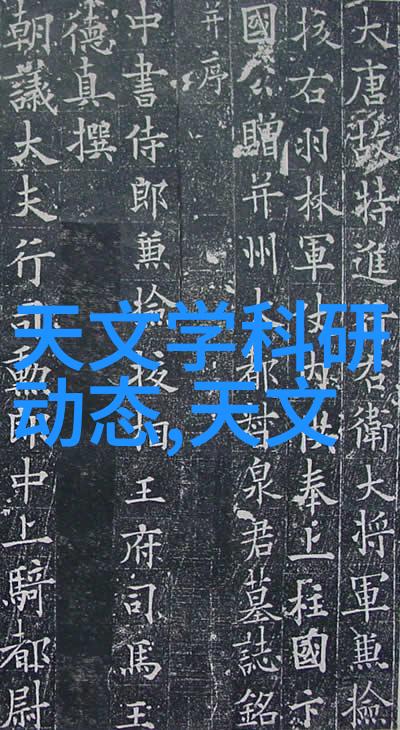 大唐故特進右衛大將軍兼撿
挍右羽林軍仗內供奉上柱國卞
國公贈并州大都督泉君墓誌銘
并序
中書侍郎兼撿挍相王府司馬王
德真撰
朝議大夫行司勳郎中上騎都尉
天文学科研
动态,天文